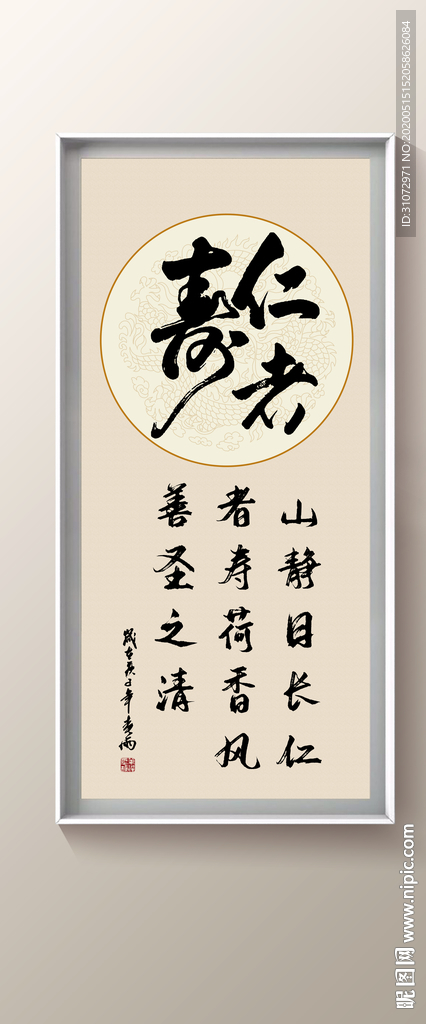 仁者
寿
山静日长仁
者寿荷香风
善圣之清
岁在庚子年春雨
ID:31072971 NO:20200515152058626084
昵图网 www.nipic.com